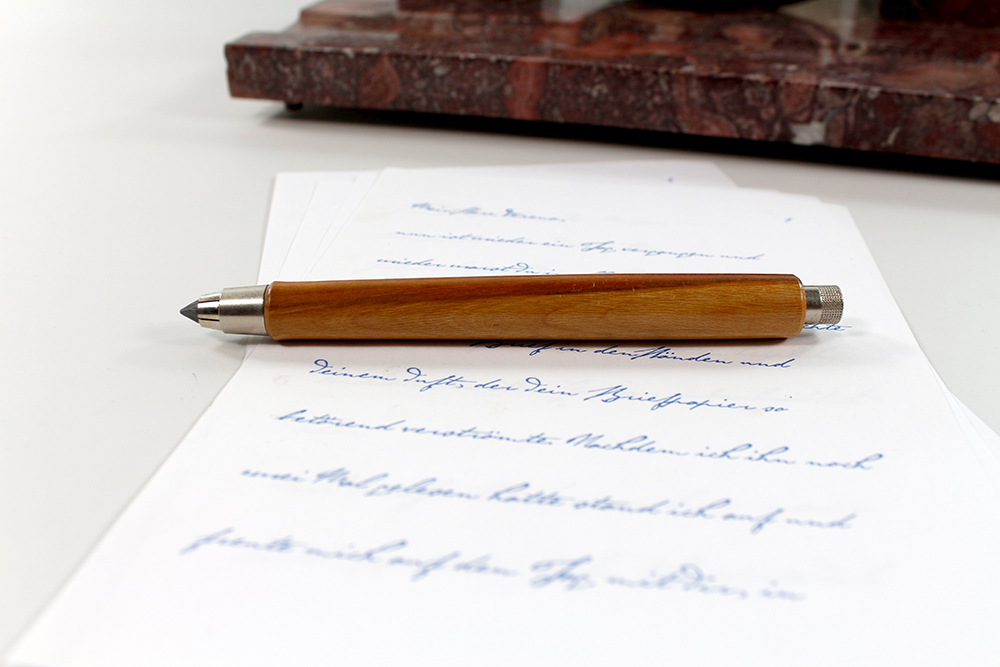 nun ist wieder ein Tag vergangen und
wieder warst du
Brief in den Händen und
deinem Duft, der dein Briefpapier so
betörend verströmte. Nachdem ich ihn noch
zwei Mal gelesen hatte stand ich auf und
freute mich auf den Tag mit dir, in